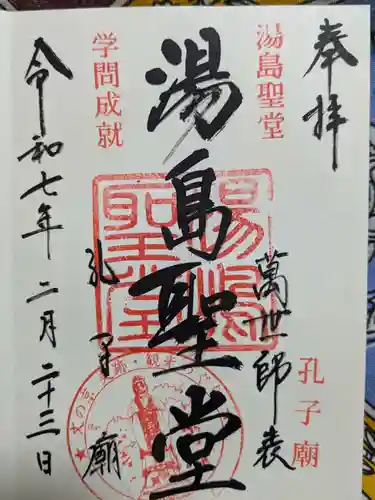 奉拝
湯島聖堂
萬世師表
孔子廟
湯島聖堂
湯島聖堂
学問成就
孔子廟
令和七年二月二十三日